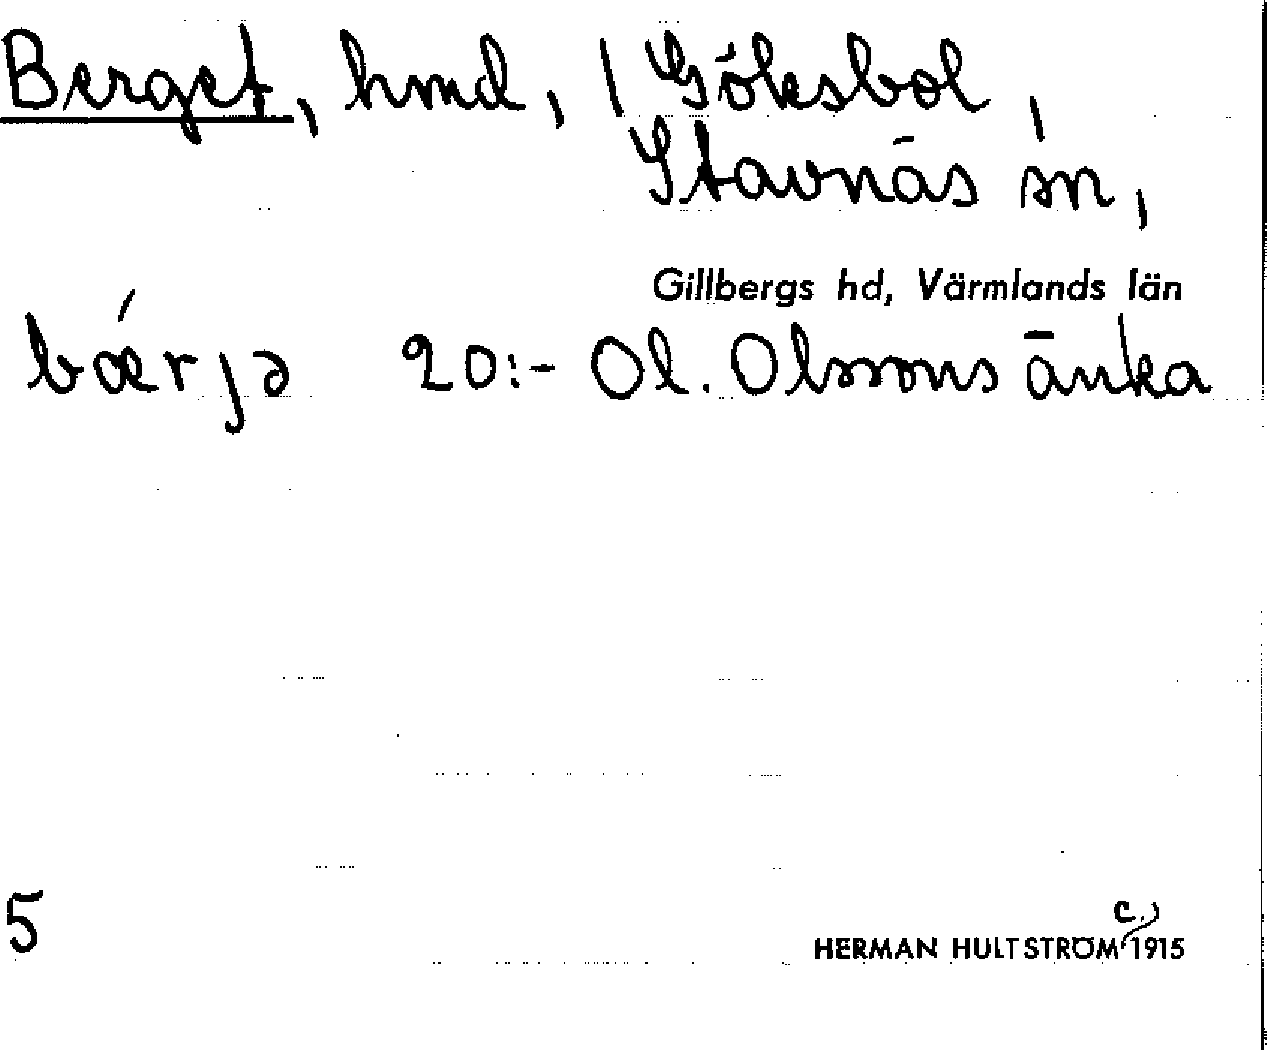 Berget, hmd, / Göksbol,
Stavnäs sn,
Gillbergs hd, Värmlands län
bǽrjə 20:- Ol. Olssons änka
5
c.)
HERMAN HULTSTRÖM 1915